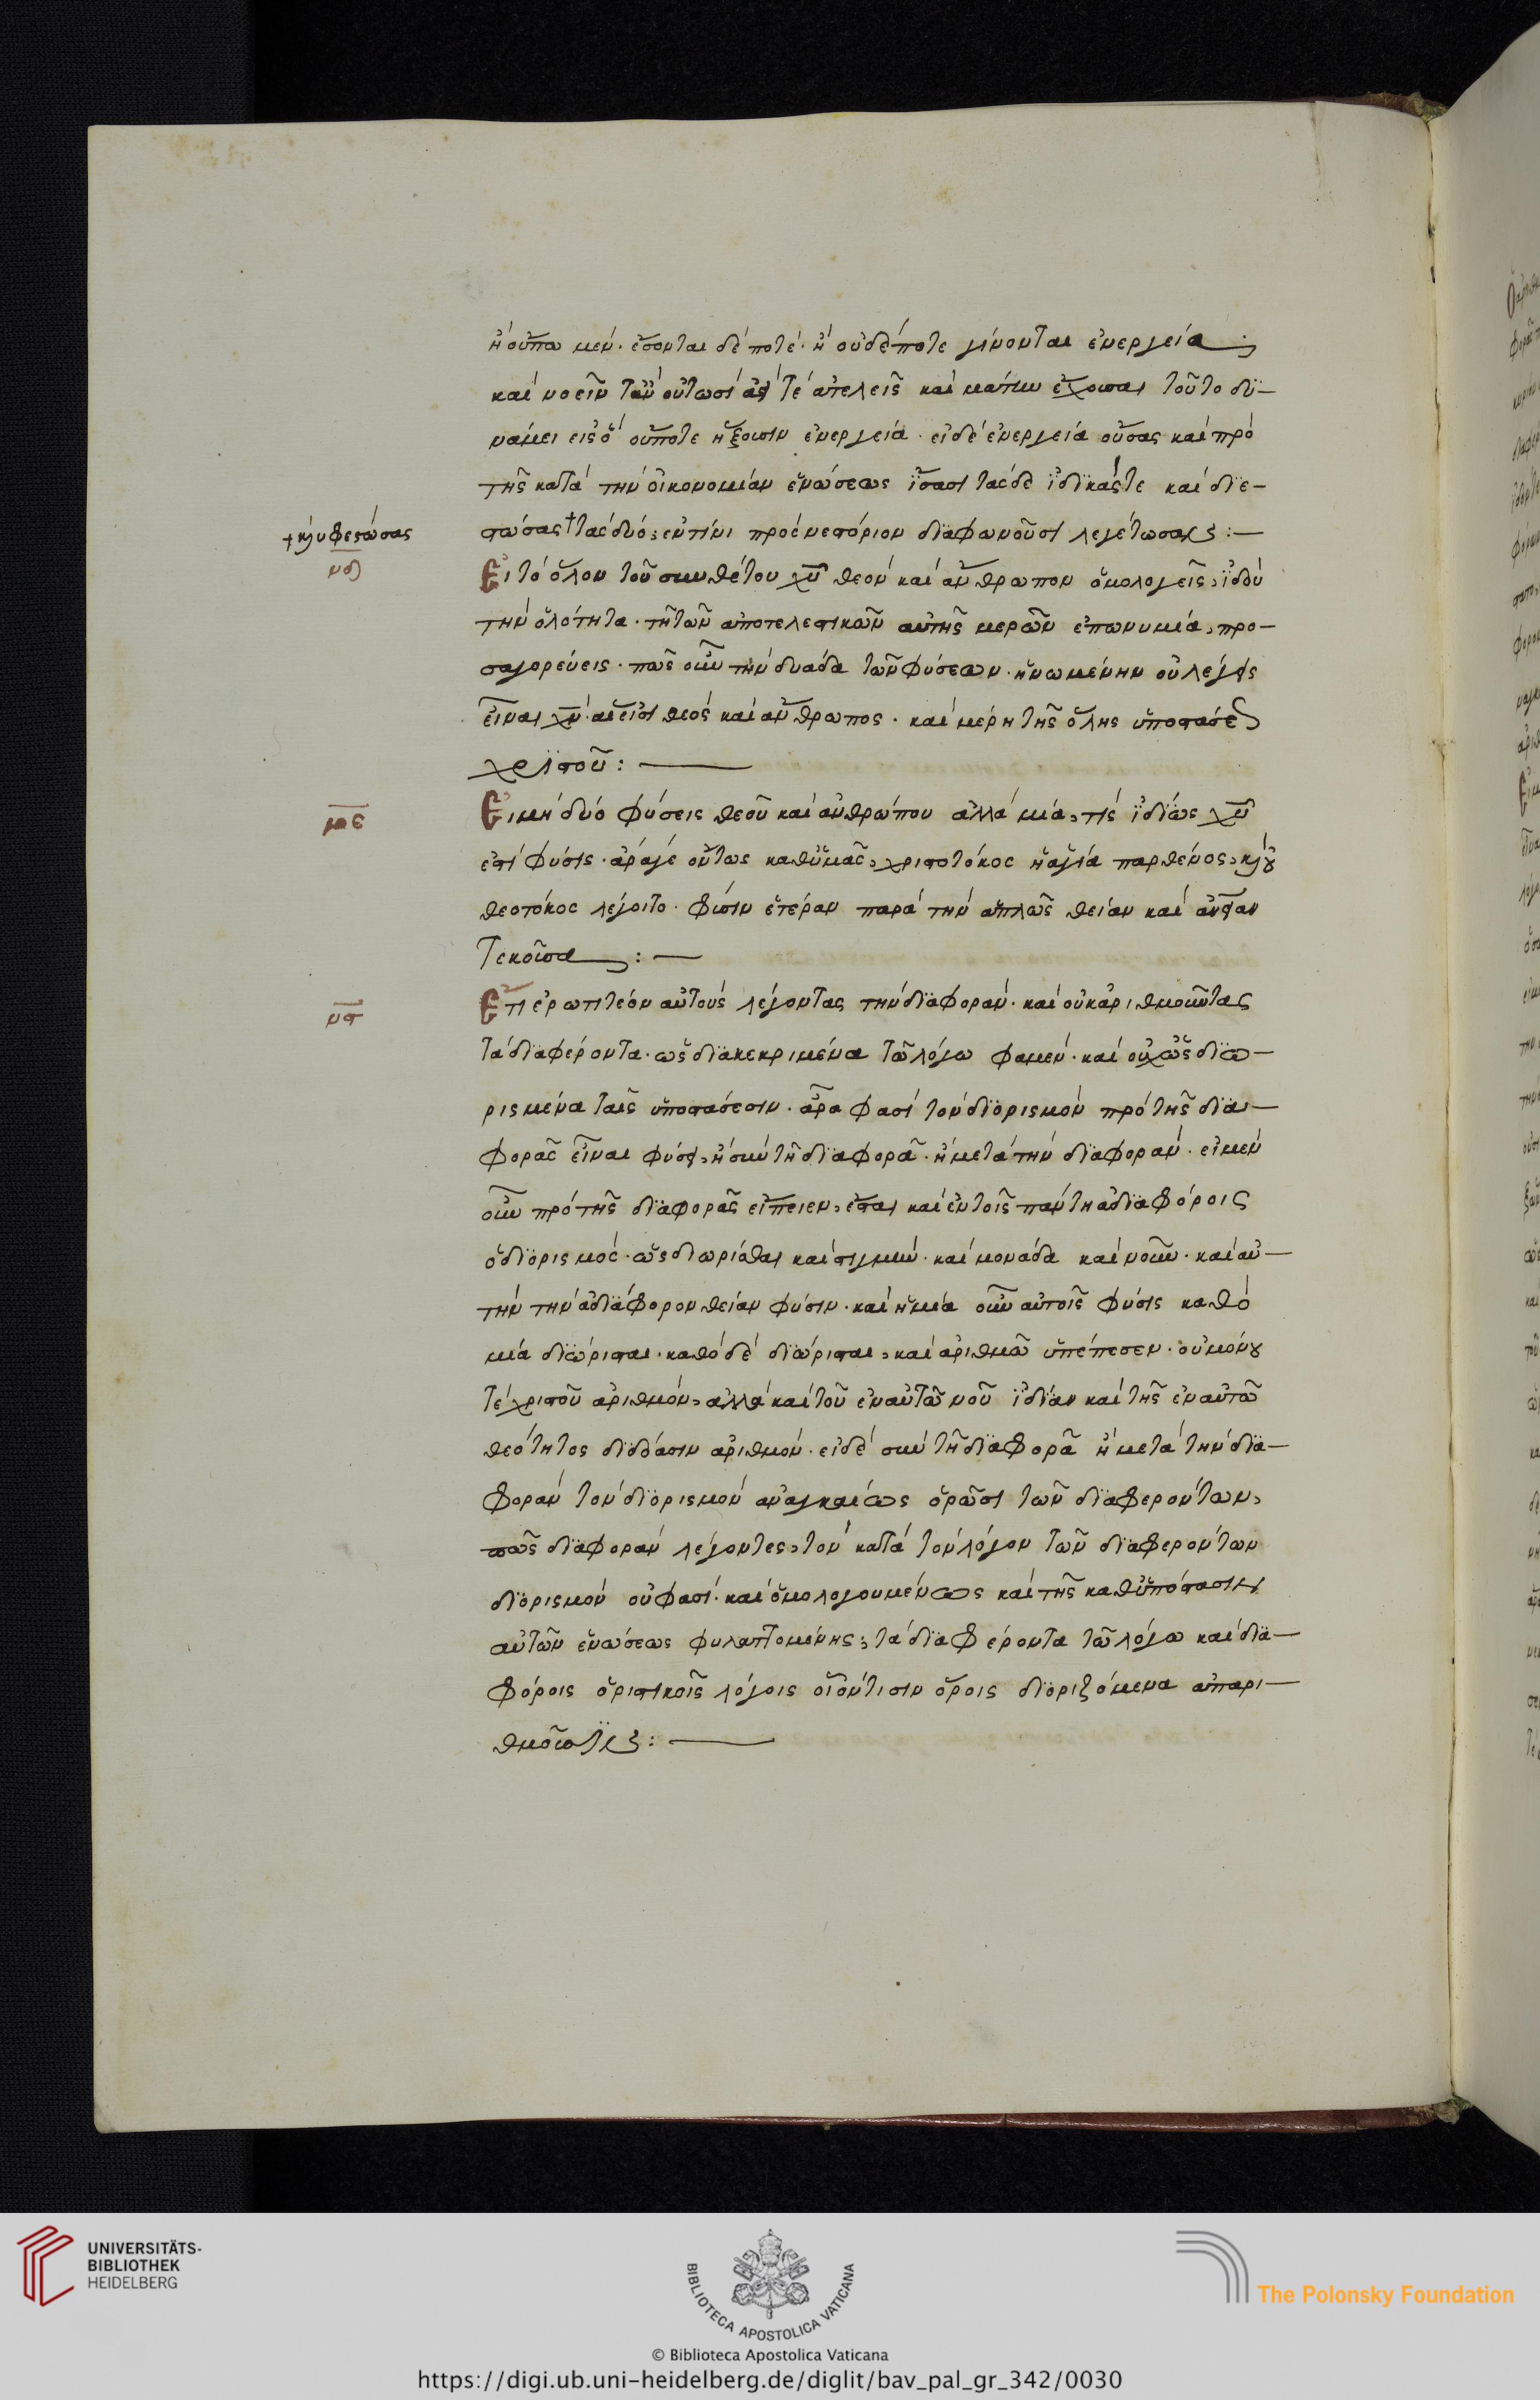 ἢ οὔπω μέν· ἔσονται δέ ποτέ· ἢ οὐδέποτε γίνονται ἐνεργεία
καὶ νοεῖν ταῦν οὑτωσὶ τὲ ἀτελεῖς καὶ μάτην ἐχούσας τοῦτο δυ-
νάμει εἰς ὃ οὔποτε ἥξουσιν ἐνεργεία· εἰ δὲ ἐνεργεία οὔσας καὶ πρὸ
τῆς κατὰ τὴν οἰκονομίαν ἑνώσεως ἴσασι τάσδε ἰδικάς τε καὶ διε-
+ κ(αὶ) ὑφεστώσας
στώσας + τὰς δύο, ἐν τίνι πρὸς νεστόριον διαφωνοῦσι λεγέτωσαν:—
νδ
Εἰ τὸ ὅλον τοῦ συνθέτου χυ θεὸν καὶ ἄνθρωπον ὁμολογεῖς, ἰδοὺ
τὴν ὁλότητα· τῇ τῶν ἀποτελεστικῶν αὐτῆς μερῶν ἐπωνυμία, προ-
σαγορεύεις· πῶς οὖν τὴν δυάδα τῶν φύσεων· ἡνωμένην οὐ λέγεις
εἶναι χν· αἵ εἰσι θεὸς καὶ ἄνθρωπος· καὶ μέρη τῆς ὅλης ὑποστάσεως
χριστοῦ:—
με
Εἰ μὴ δύο φύσεις θεοῦ καὶ ἀνθρώπου ἀλλὰ μία, τίς ἰδίως χυ
ἐστὶ φύσις· ἆρά γε οὕτως καθ ὑμᾶς, χριστοτόκος ἡ ἁγία παρθένος, κ(αὶ) οὐ
θεοτόκος λέγοιτο· φύσιν ἑτέραν παρὰ τὴν ἁπλῶς θείαν καὶ
τεκοῦσα:—
νς
Ἔτι ἐρωτητέον αὐτοὺς λέγοντας τὴν διαφοράν· καὶ οὐκ ἀριθμοῦντας
τὰ διαφέροντα· ὡς διακεκριμένα τῶ λόγω φαμέν· καὶ οὐχ ὡς διω-
ρισμένα ταῖς ὑποστάσεσιν· ἆρα φασὶ τὸν διορισμὸν πρὸ τῆς δια-
φορᾶς εἶναι φύσει, ἢ σὺν τῆ διαφορᾶ· ἢ μετὰ τὴν διαφοράν· εἰ μὲν
οὖν πρὸ τῆς διαφορᾶς εἴποιεν, ἔσται καὶ ἐν τοῖς πάντη ἀδιαφόροις
ὁ διορισμός· ὡς διωρίσθαι καὶ στιγμήν· καὶ μονάδα καὶ νοῦν· καὶ αὐ-
τὴν τὴν ἀδιάφορον θείαν φύσιν· καὶ ἡ μία οὖν αὐτοῖς φύσις καθὸ
μία διώρισται· καθὸ δὲ διώρισται, καὶ ἀριθμῶ ὑπέπεσεν· οὐ μόνου
τὲ χριστοῦ ἀριθμόν, ἀλλὰ καὶ τοῦ ἐν αὐτῶ νοῦ ἰδίαν καὶ τῆς ἐν αὐτῶ
θεότητος διδόασιν ἀριθμόν· εἰ δὲ σὺν τῆ διαφορᾶ ἢ μετὰ τὴν δια-
φορὰν τὸν διορισμὸν ἀναγκαίως ὁρῶσι τῶν διαφερόντων,
πῶς διαφορὰν λέγοντες, τὸν κατὰ τὸν λόγον τῶν διαφερόντων
διορισμὸν οὐ φασί· καὶ ὁμολογουμένως καὶ τῆς καθ ὑπόστασιν
αὐτῶν ἑνώσεως φυλαττομένης, τὰ διαφέροντα τῶ λόγω καὶ δια-
φόροις ὁριστικοῖς λόγοις οἱονεί τισιν ὅροις διοριζόμενα ἀπαρι-
θμοῦντες:—
UNIVERSITÄTS-
BIBLIOTHEK
HEIDELBERG
BIBLIOTECA APOSTOLICA VATICANA
The Polonsky Foundation
© Biblioteca Apostolica Vaticana
https://digi.ub.uni-heidelberg.de/diglit/bav_pal_gr_342/0030